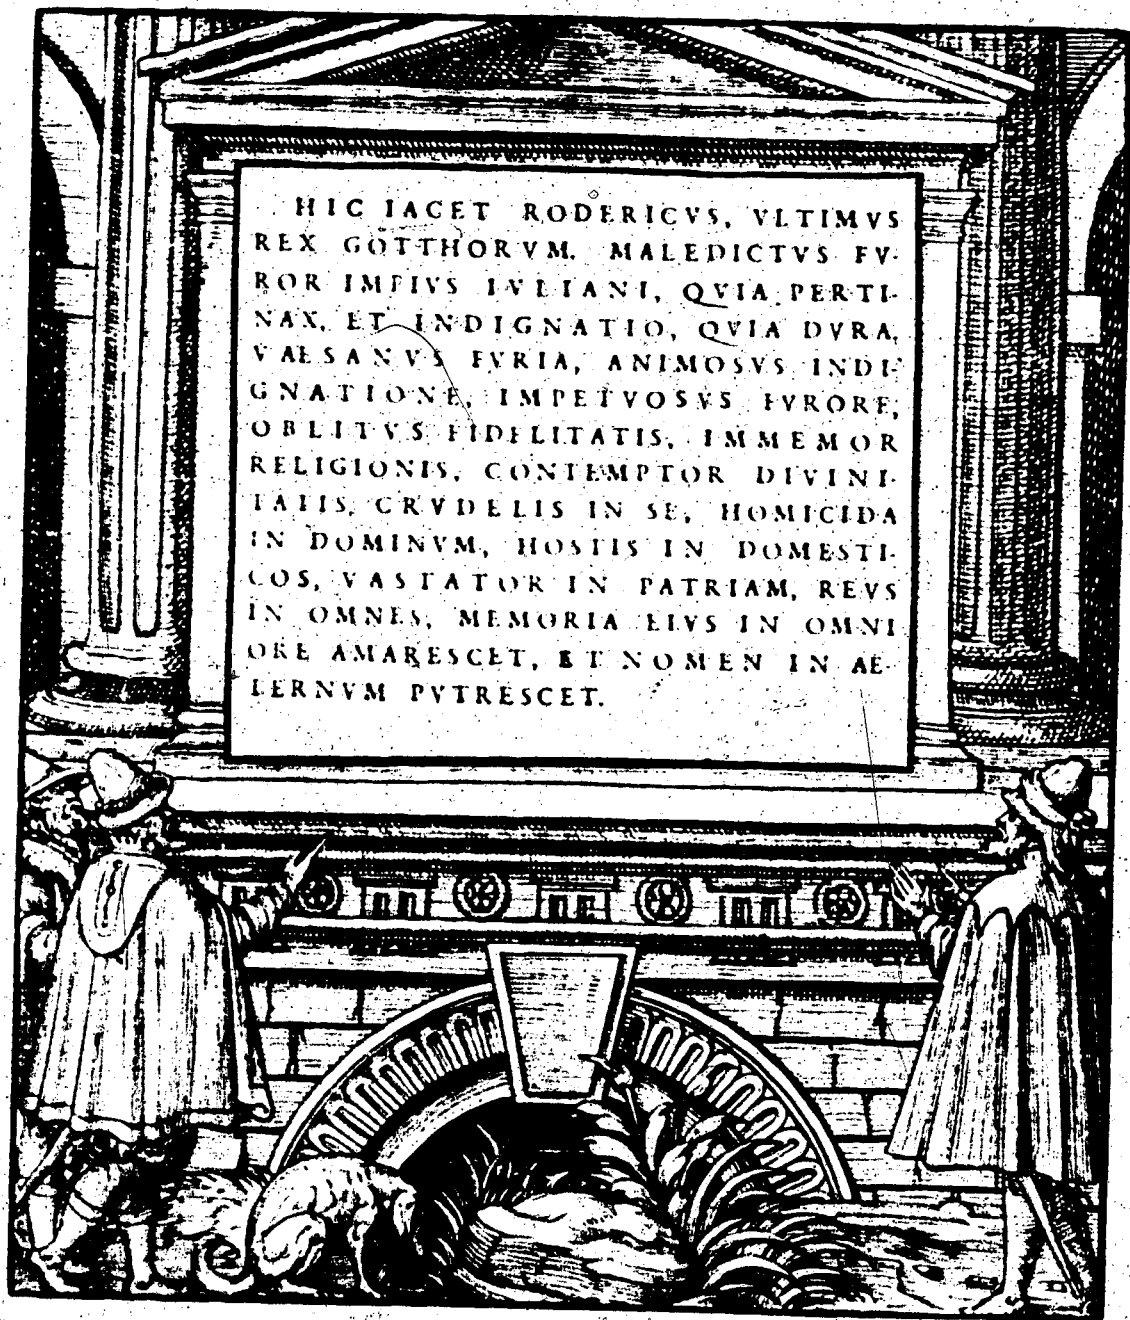 HIC IACET RODERICVS, VLTIMVS
REX GOTTHORVM. MALEDICTVS FV-
ROR IMPIVS IVLIANI, QVIA PERTI-
NAX, ET INDIGNATIO, QVIA DVRA,
VAESANVS FVRIA, ANIMOSVS INDI-
GNATIONE, IMPETVOSVS FVRORE,
OBLITVS FIDELITATIS, IMMEMOR
RELIGIONIS, CONTEMPTOR DIVINI-
TATIS, CRVDELIS IN SE, HOMICIDA
IN DOMINVM, HOSTIS IN DOMESTI-
COS, VASTATOR IN PATRIAM, REVS
IN OMNES, MEMORIA EIVS IN OMNI
ORE AMARESCET, ET NOMEN IN AE-
TERNVM PVTRESCET.